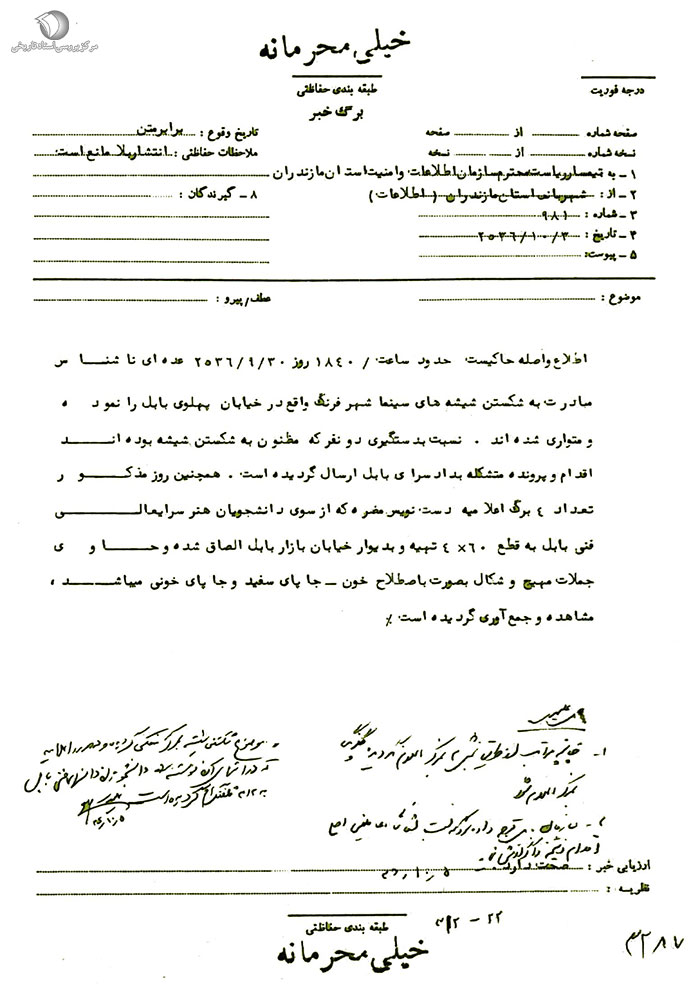 مرکز بررسی اسناد تاریخی
خیلی محرمانه
طبقه بندی حفاظتی
درجه فوریت
برگ خبر
صفحه شماره ........ از ........ صفحه
تاریخ وقوع : برابر متن
نسخه شماره ........ از ........ نسخه
ملاحظات حفاظتی : انتشار بلا مانع است
۱ ـ به تیمسار ریاست محترم سازمان اطلاعات و امنیت استان مازندران
۲ ـ از : شهربانی استان مازندران (اطلاعات)
۸ ـ گیرندگان :
۳ ـ شماره : ۹۸۱
۴ ـ تاریخ : ۲۵۳۶/۱۰/۳
۵ ـ پیوست:
موضوع :
عطف/پیرو :
اطلاع واصله حاکیست حدود ساعت / ۱۸۴۰ روز ۲۵۳۶/۹/۳۰ عده ای ناشناس
مبادرت به شکستن شیشه های سینما شهر فرنگ واقع در خیابان پهلوی بابل را نموده
و متواری شده اند . نسبت بدستگیری دو نفر که مظنون به شکستن شیشه بوده اند
اقدام و پرونده متشکله بدادسرای بابل ارسال گردیده است . همچنین روز مذکور
تعداد ٤ برگ اعلامیه دست نویس مضره که از سوی دانشجویان هنرسرایعالی
فنی بابل به قطع ۶۰×٤ تهیه و بدیوار خیابان بازار بابل الصاق شده و حاوی
جملات مهیج و شکال بصورت باصطلاح خون ـ جا پای سفید و جا پای خونی میباشد ،
مشاهده و جمع آوری گردیده است ٪
ارزیابی خبر : صحت دارد
نظریه :
۲۲ - ۳۱۲
طبقه بندی حفاظتی
خیلی محرمانه
۳۲۸۷